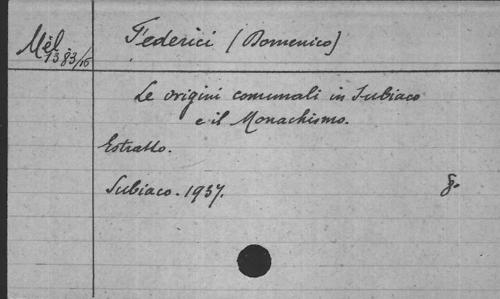 Mèl
1383/16
Federici (Domenico)
Le origini comunali in Subiaco
e il Monachismo.
Estratto.
Subiaco. 1937. 8.